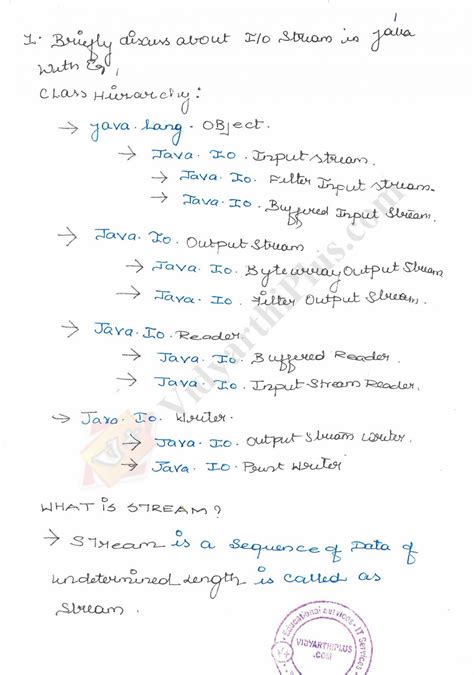 1. Briefly discuss about I/o Stream in java
with Eg,
Class Hierarchy:
→ java.lang.Object.
→ Java.Io.Input stream.
→ Java.Io.Filter Input stream.
→ Java.Io.Buffered Input Stream.
→ Java.Io.Output Stream.
→ Java.Io.Bytearray Output Stream
→ Java.Io.Filter Output Stream.
→ Java.Io.Reader.
→ Java.Io.Buffered Reader.
→ Java.Io.Input Stream Reader.
→ Java.Io.Writer.
→ Java.Io.Output Stream Writer.
→ Java.Io.Print Writer
WHAT IS STREAM?
→ Stream is a Sequence of Data of
undetermined Length is called as
Stream.
VidyarthiPlus.com
Educational Services - IT Services
VIDYARTHIPLUS
.COM
V+